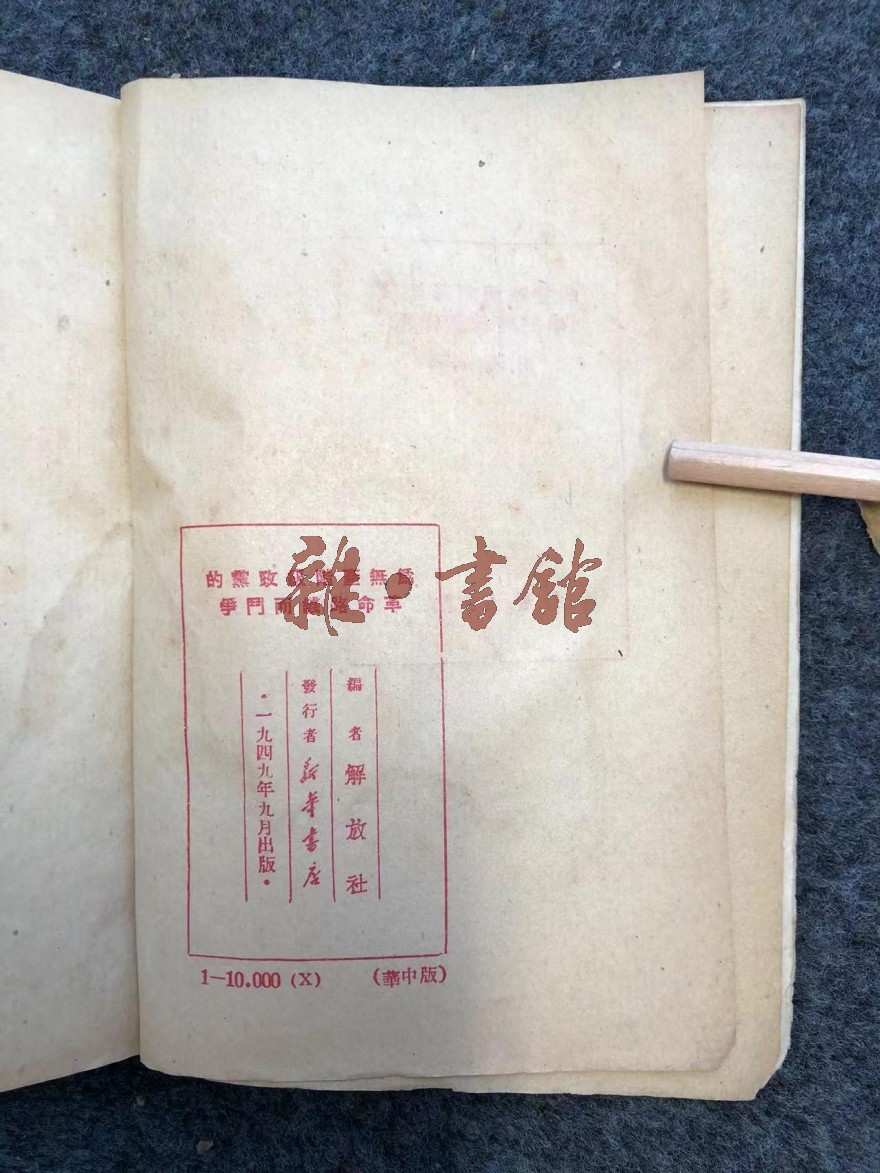 爲無產階級政黨的
革命路線而鬥爭
編者 解放社
發行者 新華書店
·一九四九年九月出版·
1—10.000 (X) (華中版)
雜·書館